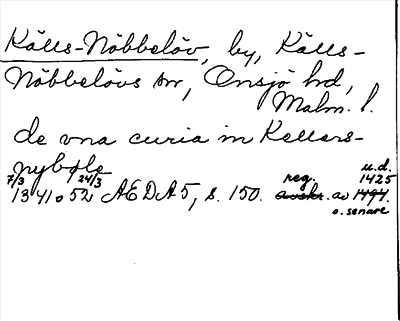 Källs-Nöbbelöv, by, Källs-
Nöbbelövs sn, Onsjö hd,
Malm. l.
de vna curia in Kellers-
nyböle
7/3 24/3 reg. u.d. 1425
1341 o 52 AEDA 5, s. 150. avskr. av 1494.
o. senare